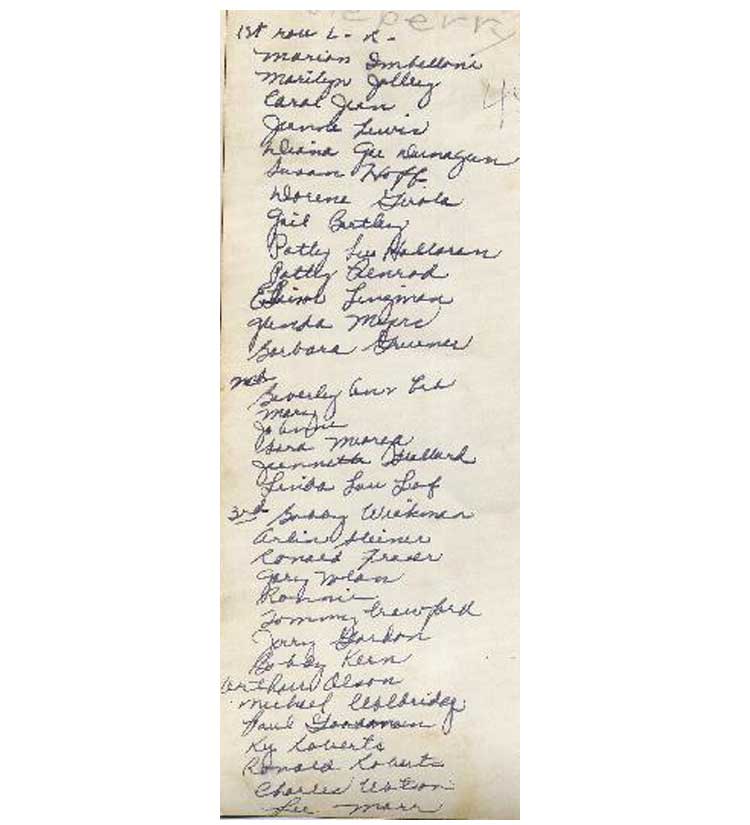 1st row L - R -
Marion Imbelloni
Marilyn Jolley
Carol Jean
Lewis
Diana Gee Dunagun
Susan Hoff
Dorene Girola
Gail Bartley
Patty Lee Halloran
Patty Penrod
Elaine Lingman
Glenda Myers
Barbara Gruener
Beverly Ann
Mary
Joanne
Sara
Jeannette
Linda Lou
3rd Bobby Wickman
Arlin Steiner
Ronald Fraser
Gary Nolan
Ronnie
Tommy Crawford
Jerry Gordon
Bobby Kern
Arthur Olson
Michael Walbridge
Paul Goodman
Ky Roberts
Ronald Roberts
Charles Watson
Lee Marr